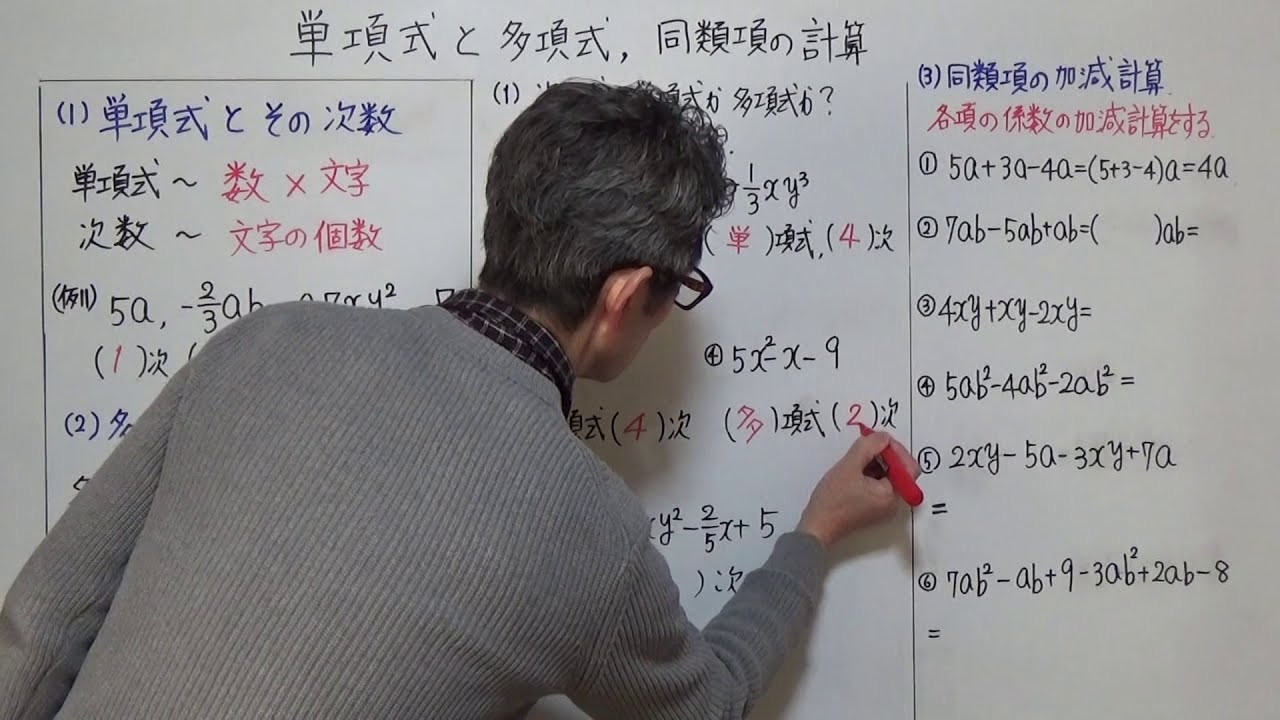 単項式と多項式, 同類項の計算
(1) 単項式とその次数
単項式 ~ 数×文字
次数 ~ 文字の個数
(例1) 5a, -2/3ab
(1)次
(2) 多
(1) 多項式か?
1/3xy³
(単)項式, (4)次
④ 5x²-x-9
項式(4)次 (多)項式(2)次
xy²-2/5x+5
)次
(3) 同類項の加減計算
各項の係数の加減計算をする.
① 5a+3a-4a=(5+3-4)a=4a
② 7ab-5ab+ab=( )ab=
③ 4xy+xy-2xy=
④ 5ab²-4ab²-2ab²=
⑤ 2xy-5a-3xy+7a
=
⑥ 7ab²-ab+9-3ab²+2ab-8
=